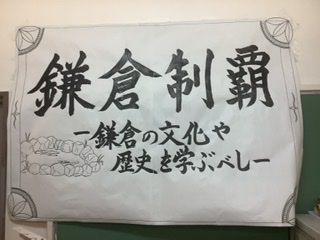 鎌倉制覇
ー鎌倉の文化や
歴史を学ぶべしー